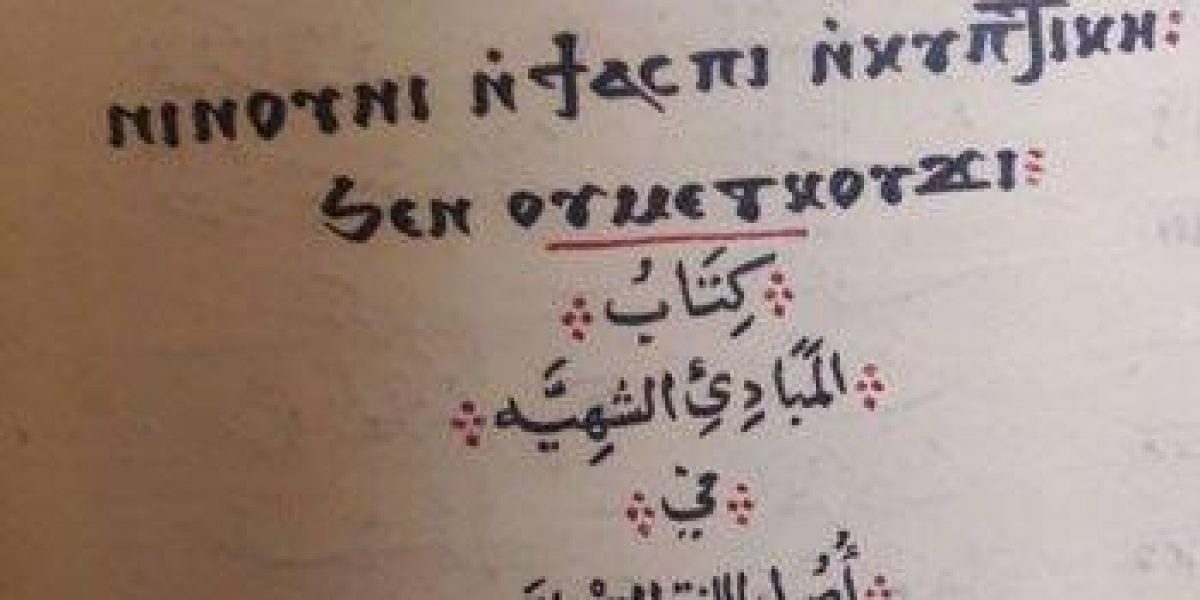 ⲛⲓⲛⲟⲩⲛⲓ ⲛ̇ϯⲁⲥⲡⲓ ⲛ̇ⲭⲩⲡϯⲓⲕⲏ:
ϧⲉⲛ ⲟⲩⲙⲉⲧⲕⲟⲩϫⲓ:
كِتَابُ
المَبَادِئِ الشهِيَّه
في